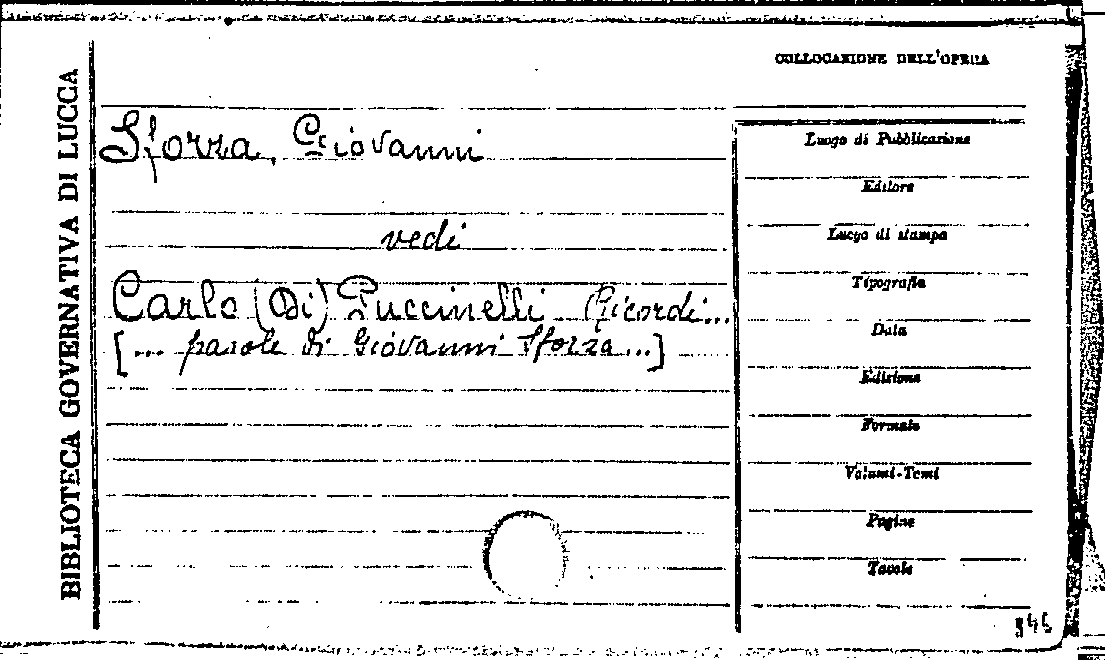 BIBLIOTECA GOVERNATIVA DI LUCCA
COLLOCAZIONE DELL'OPERA
Sforza, Giovanni
vedi
Carlo (Di) Puccinelli Ricordi...
[... parole di Giovanni Sforza...]
Luogo di Pubblicazione
Editore
Luogo di stampa
Tipografia
Data
Edizione
Formato
Volumi-Tomi
Pagine
Tavole